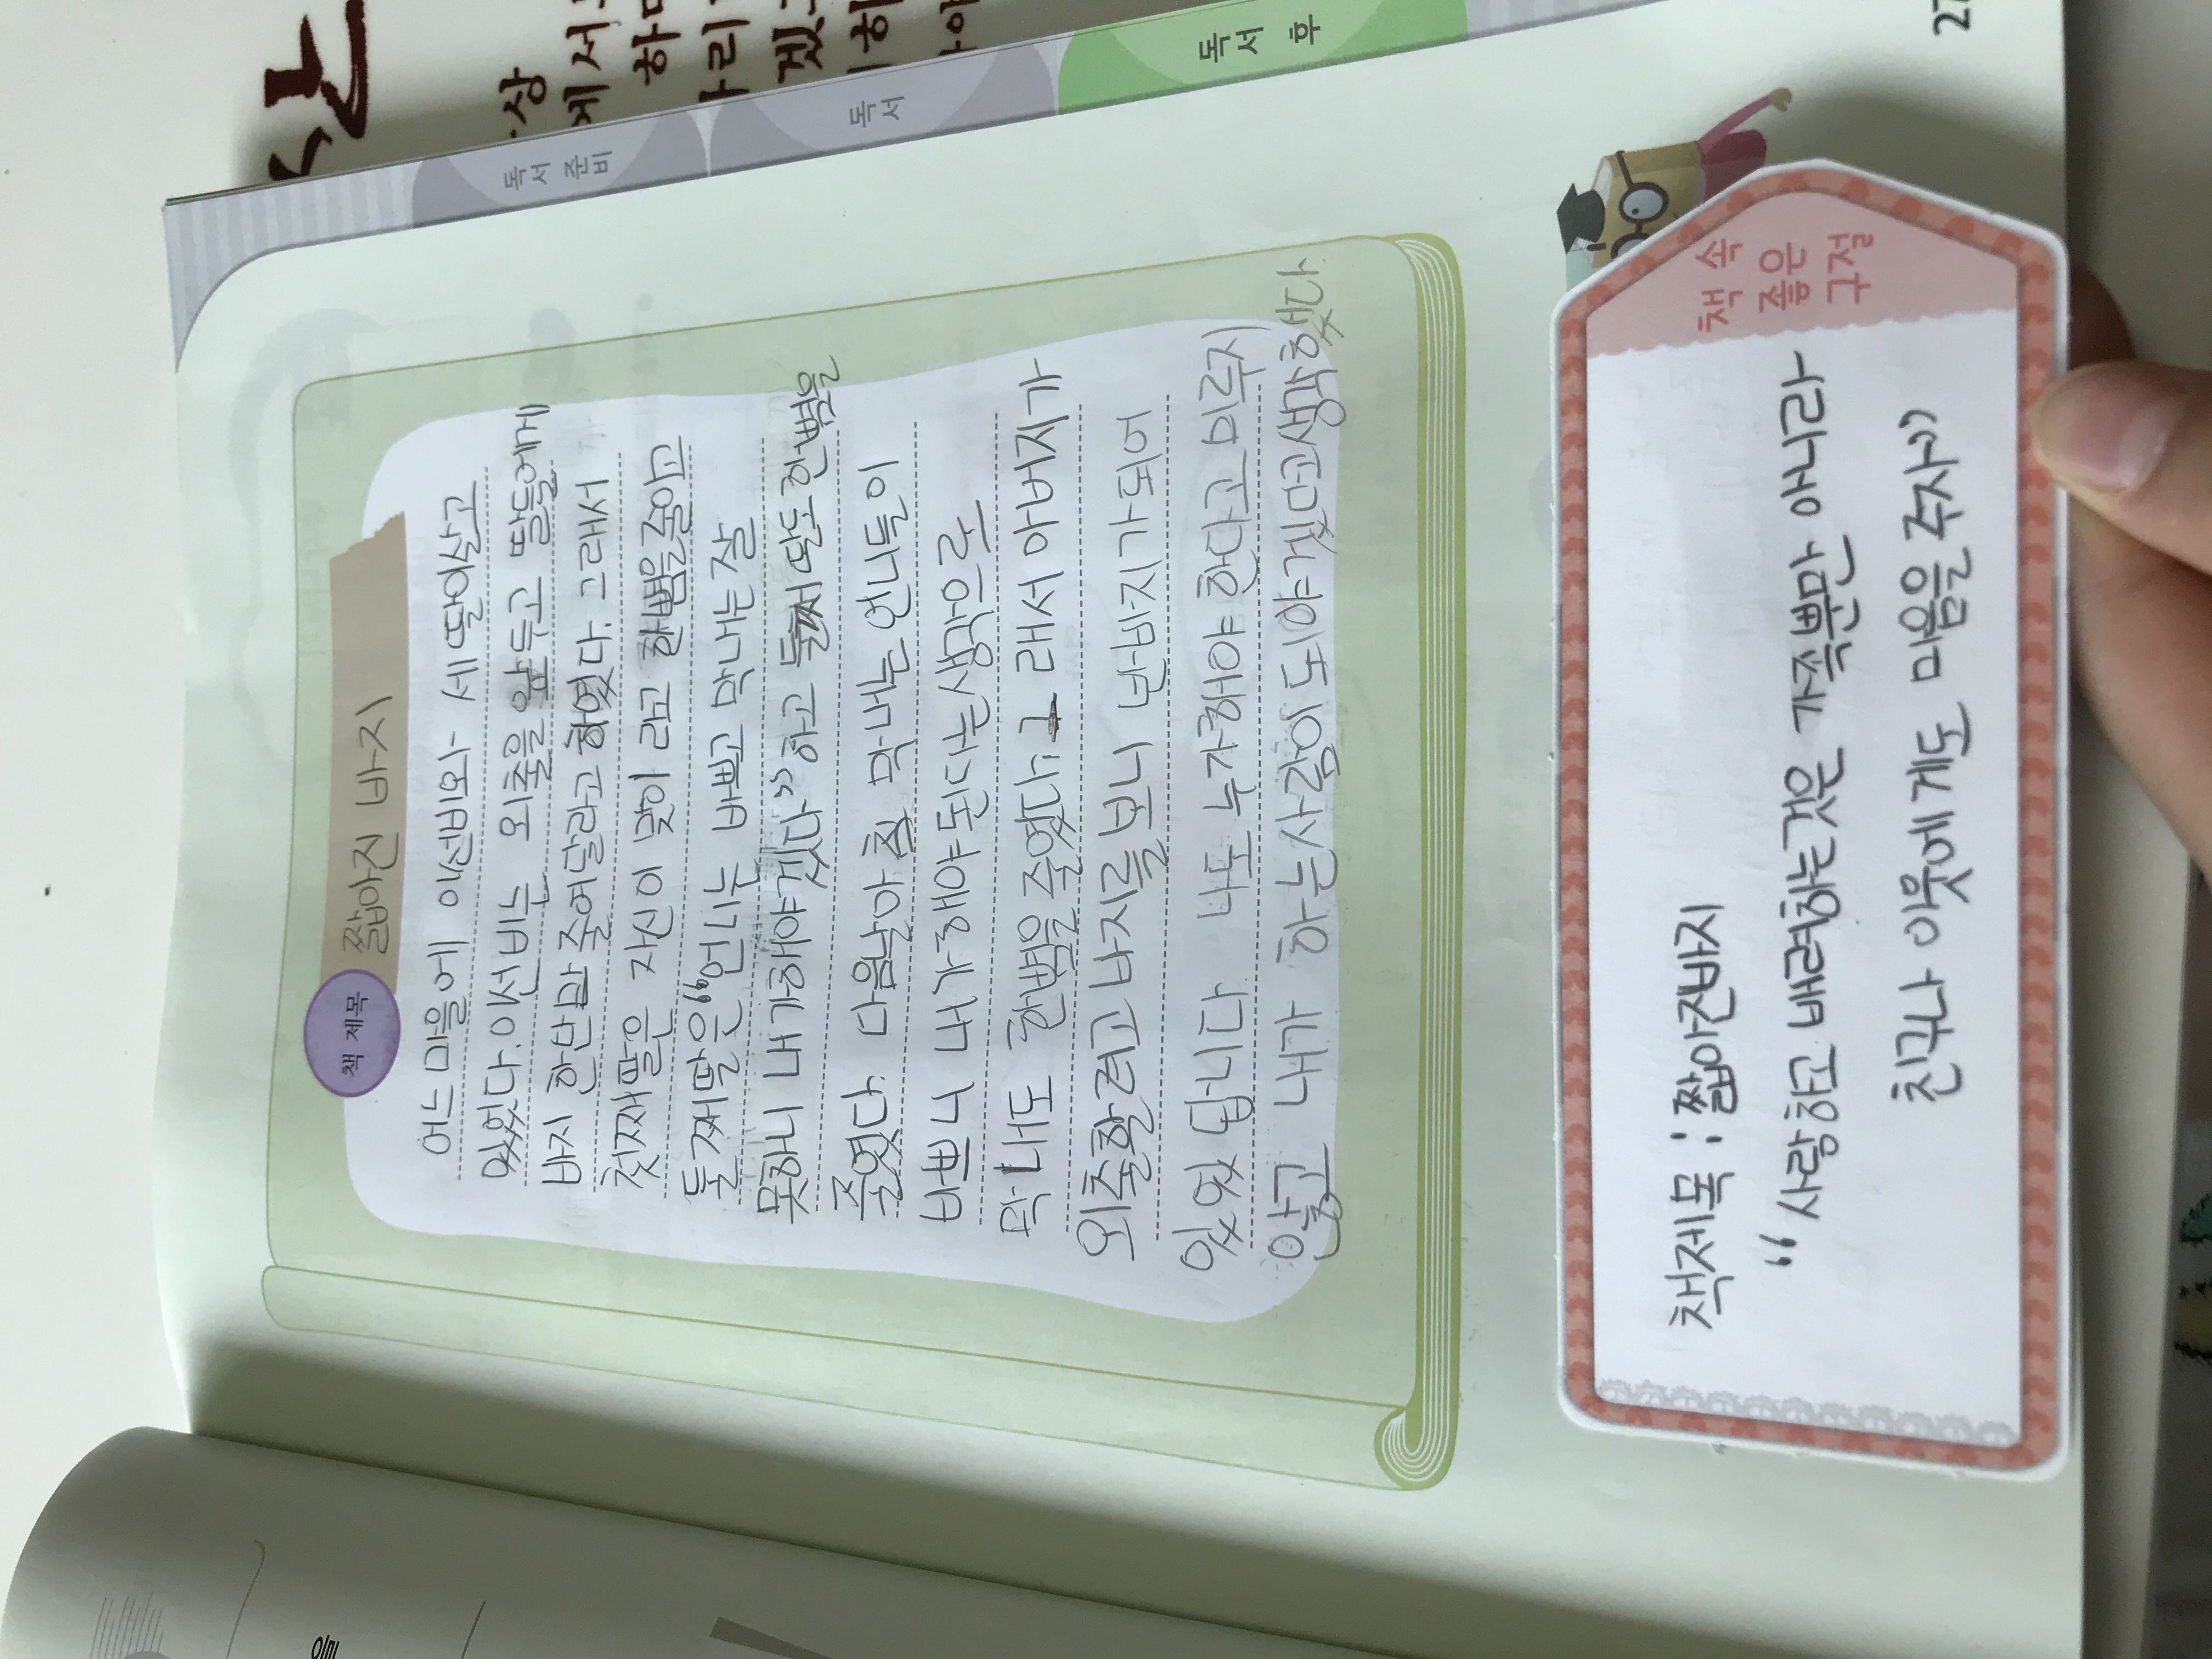 을
책 제목 짧아진 바지
어느 마을에 이선비와 세 딸이살고
있었다. 이선비는 외출을 앞두고 딸들에게
바지 한단만 줄여달라고 하였다. 그래서
첫째딸은 자신이 맞이 라고 한뼘을줄이고
둘째딸은 “언니는 바쁘고 막내는 잘
못하니 내가해야겠다” 하고 둘째 딸도 한뼘을
줄였다. 다음날아침 막내는 언니들이
바쁘니 내가해야된다는생각으로
막내도 한뼘을 줄였다. 그래서 아버지가
외출할려고 바지를 보니 반바지가되어
있었답니다 나도 누가해야 한다고 미루지
않고 내가 하는사람이 되야겠다고생각했다.
책제목 : 짧아진바지
“사랑하고 배려하는것은 가족뿐만 아니라
친구나 이웃에게도 마음을 주자”
책 속
좋은
구절
독서 준비
독서
독서 후
27
산
상
에서
하
리
겠
하